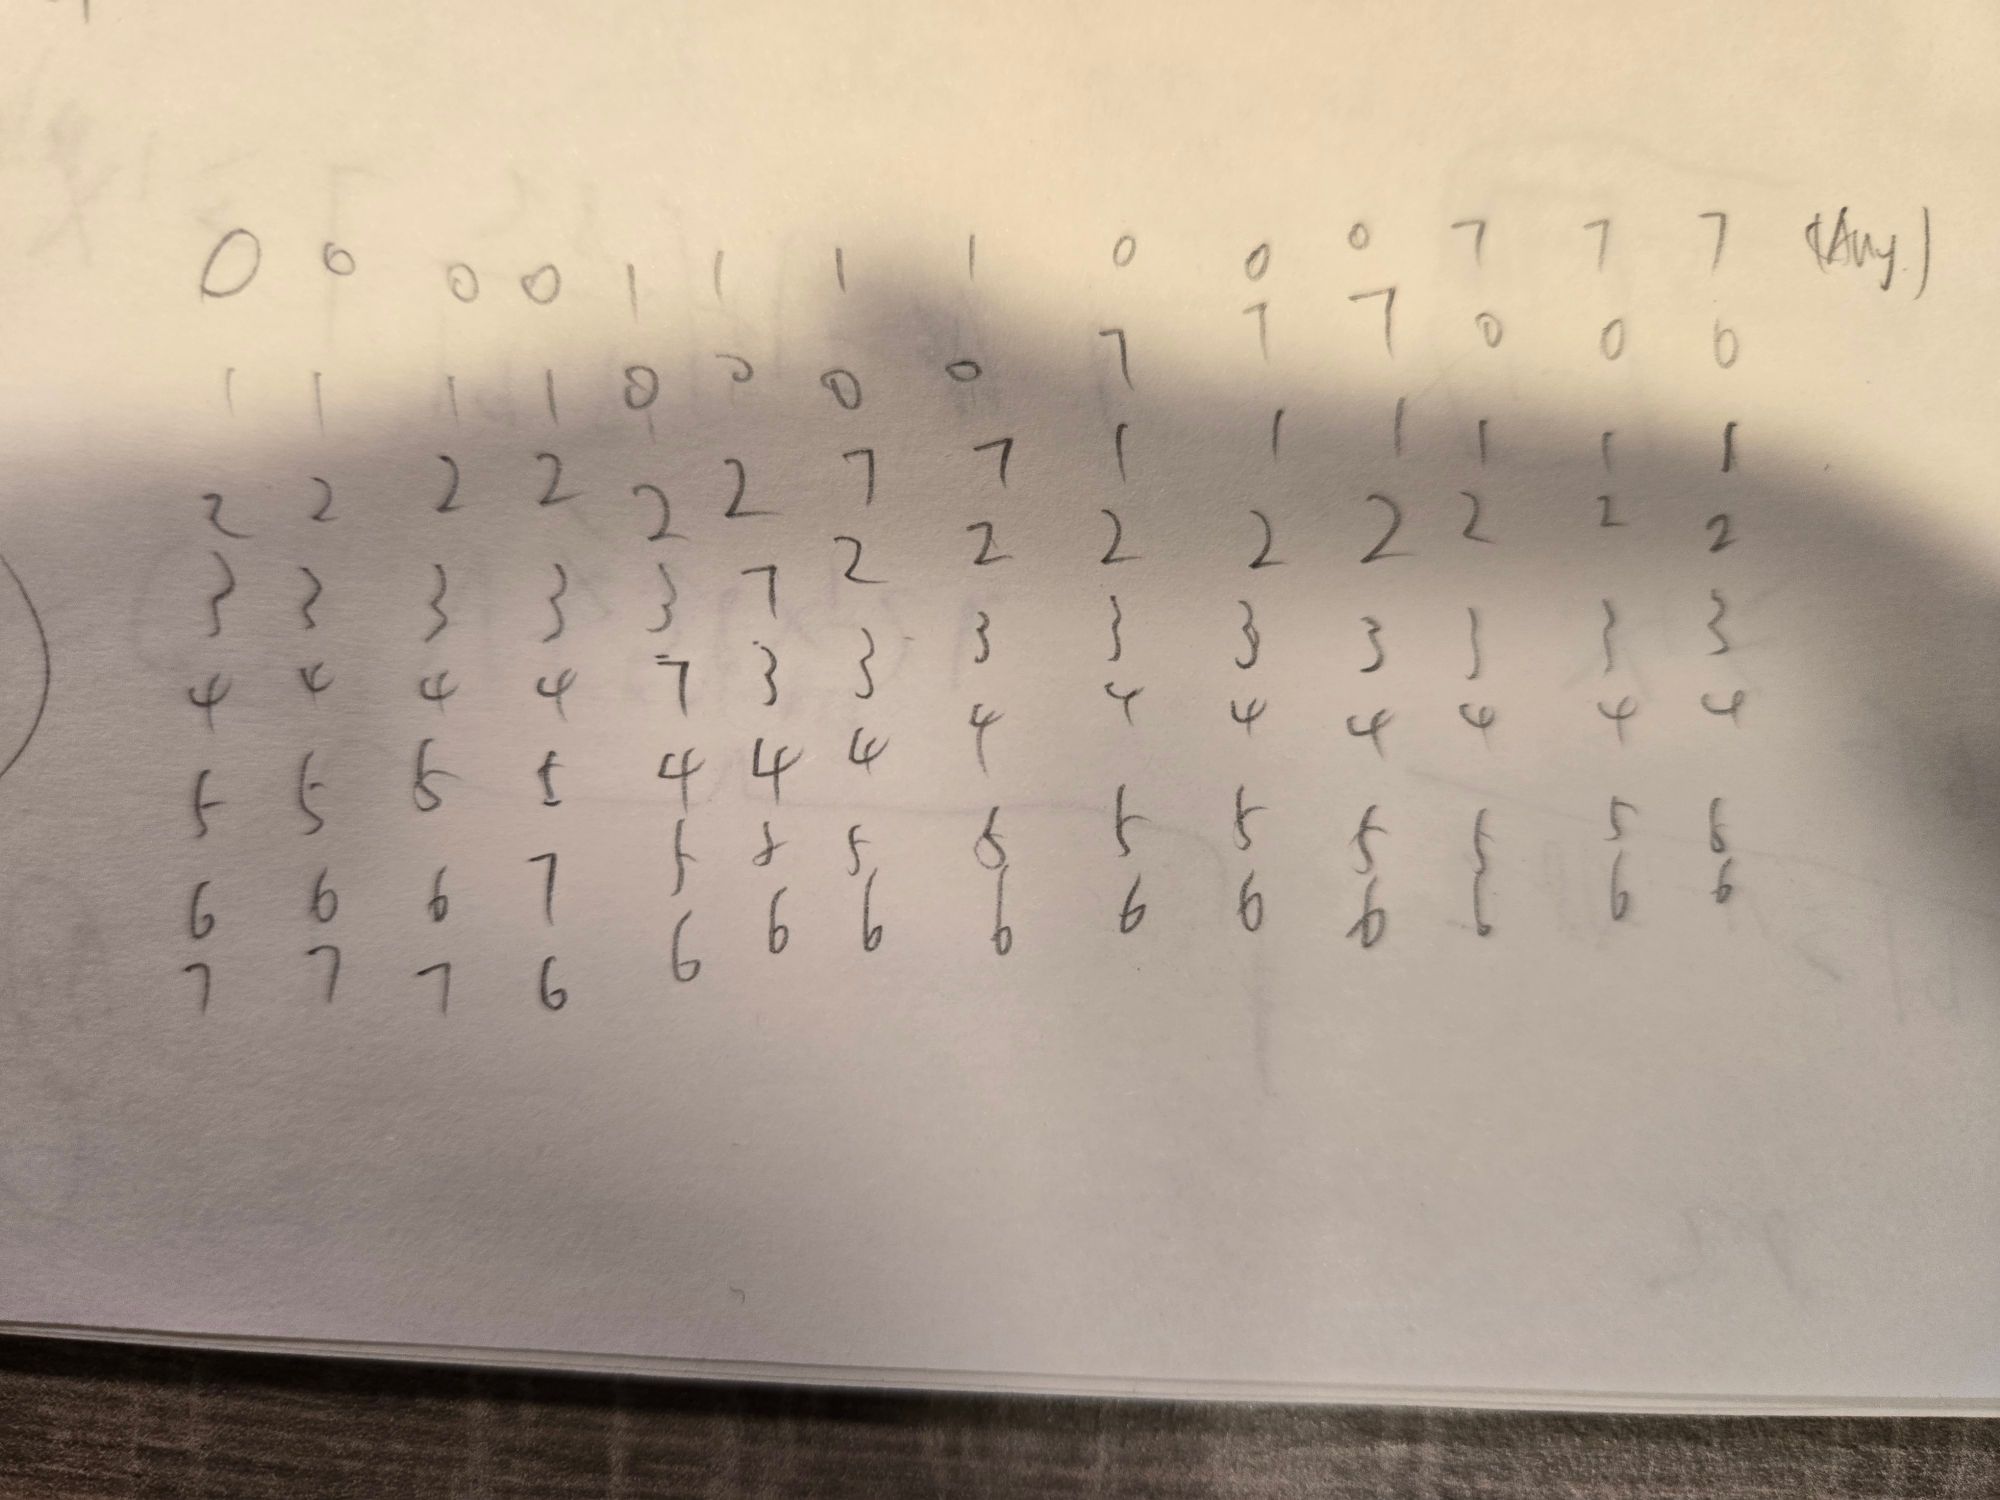 0 0 0 0 1 1 1 1 0 0 0 7 7 7 (Any.)
1 1 1 1 0 0 0 0 7 7 7 0 0 0
2 2 2 2 2 2 7 7 1 1 1 1 1 1
3 3 3 3 3 7 2 2 2 2 2 2 2 2
4 4 4 4 7 3 3 3 3 3 3 3 3 3
5 5 5 5 4 4 4 4 4 4 4 4 4 4
6 6 6 7 5 5 5 5 5 5 5 5 5 5
7 7 7 6 6 6 6 6 6 6 6 6 6 6